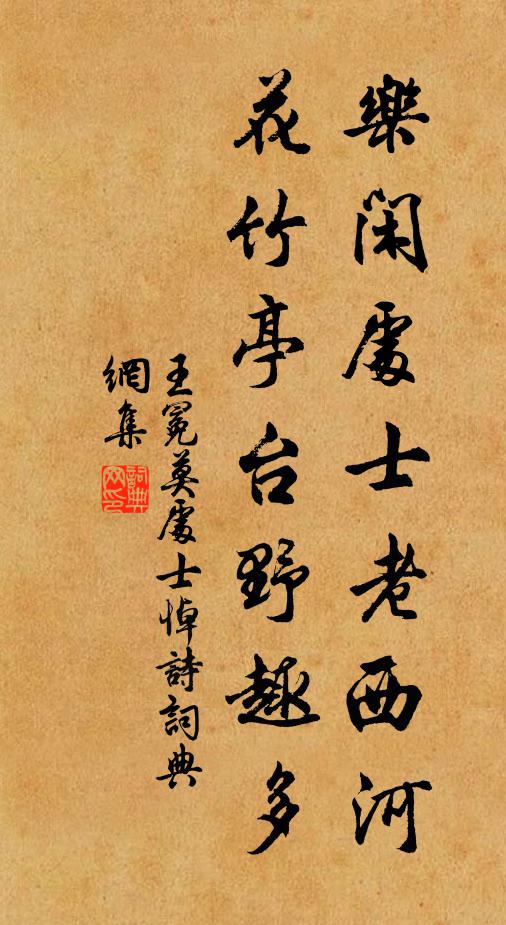 樂閑處士老西河
花竹亭台野趣多
王冕莫處士悼詩詞典
網集
詞典
网印